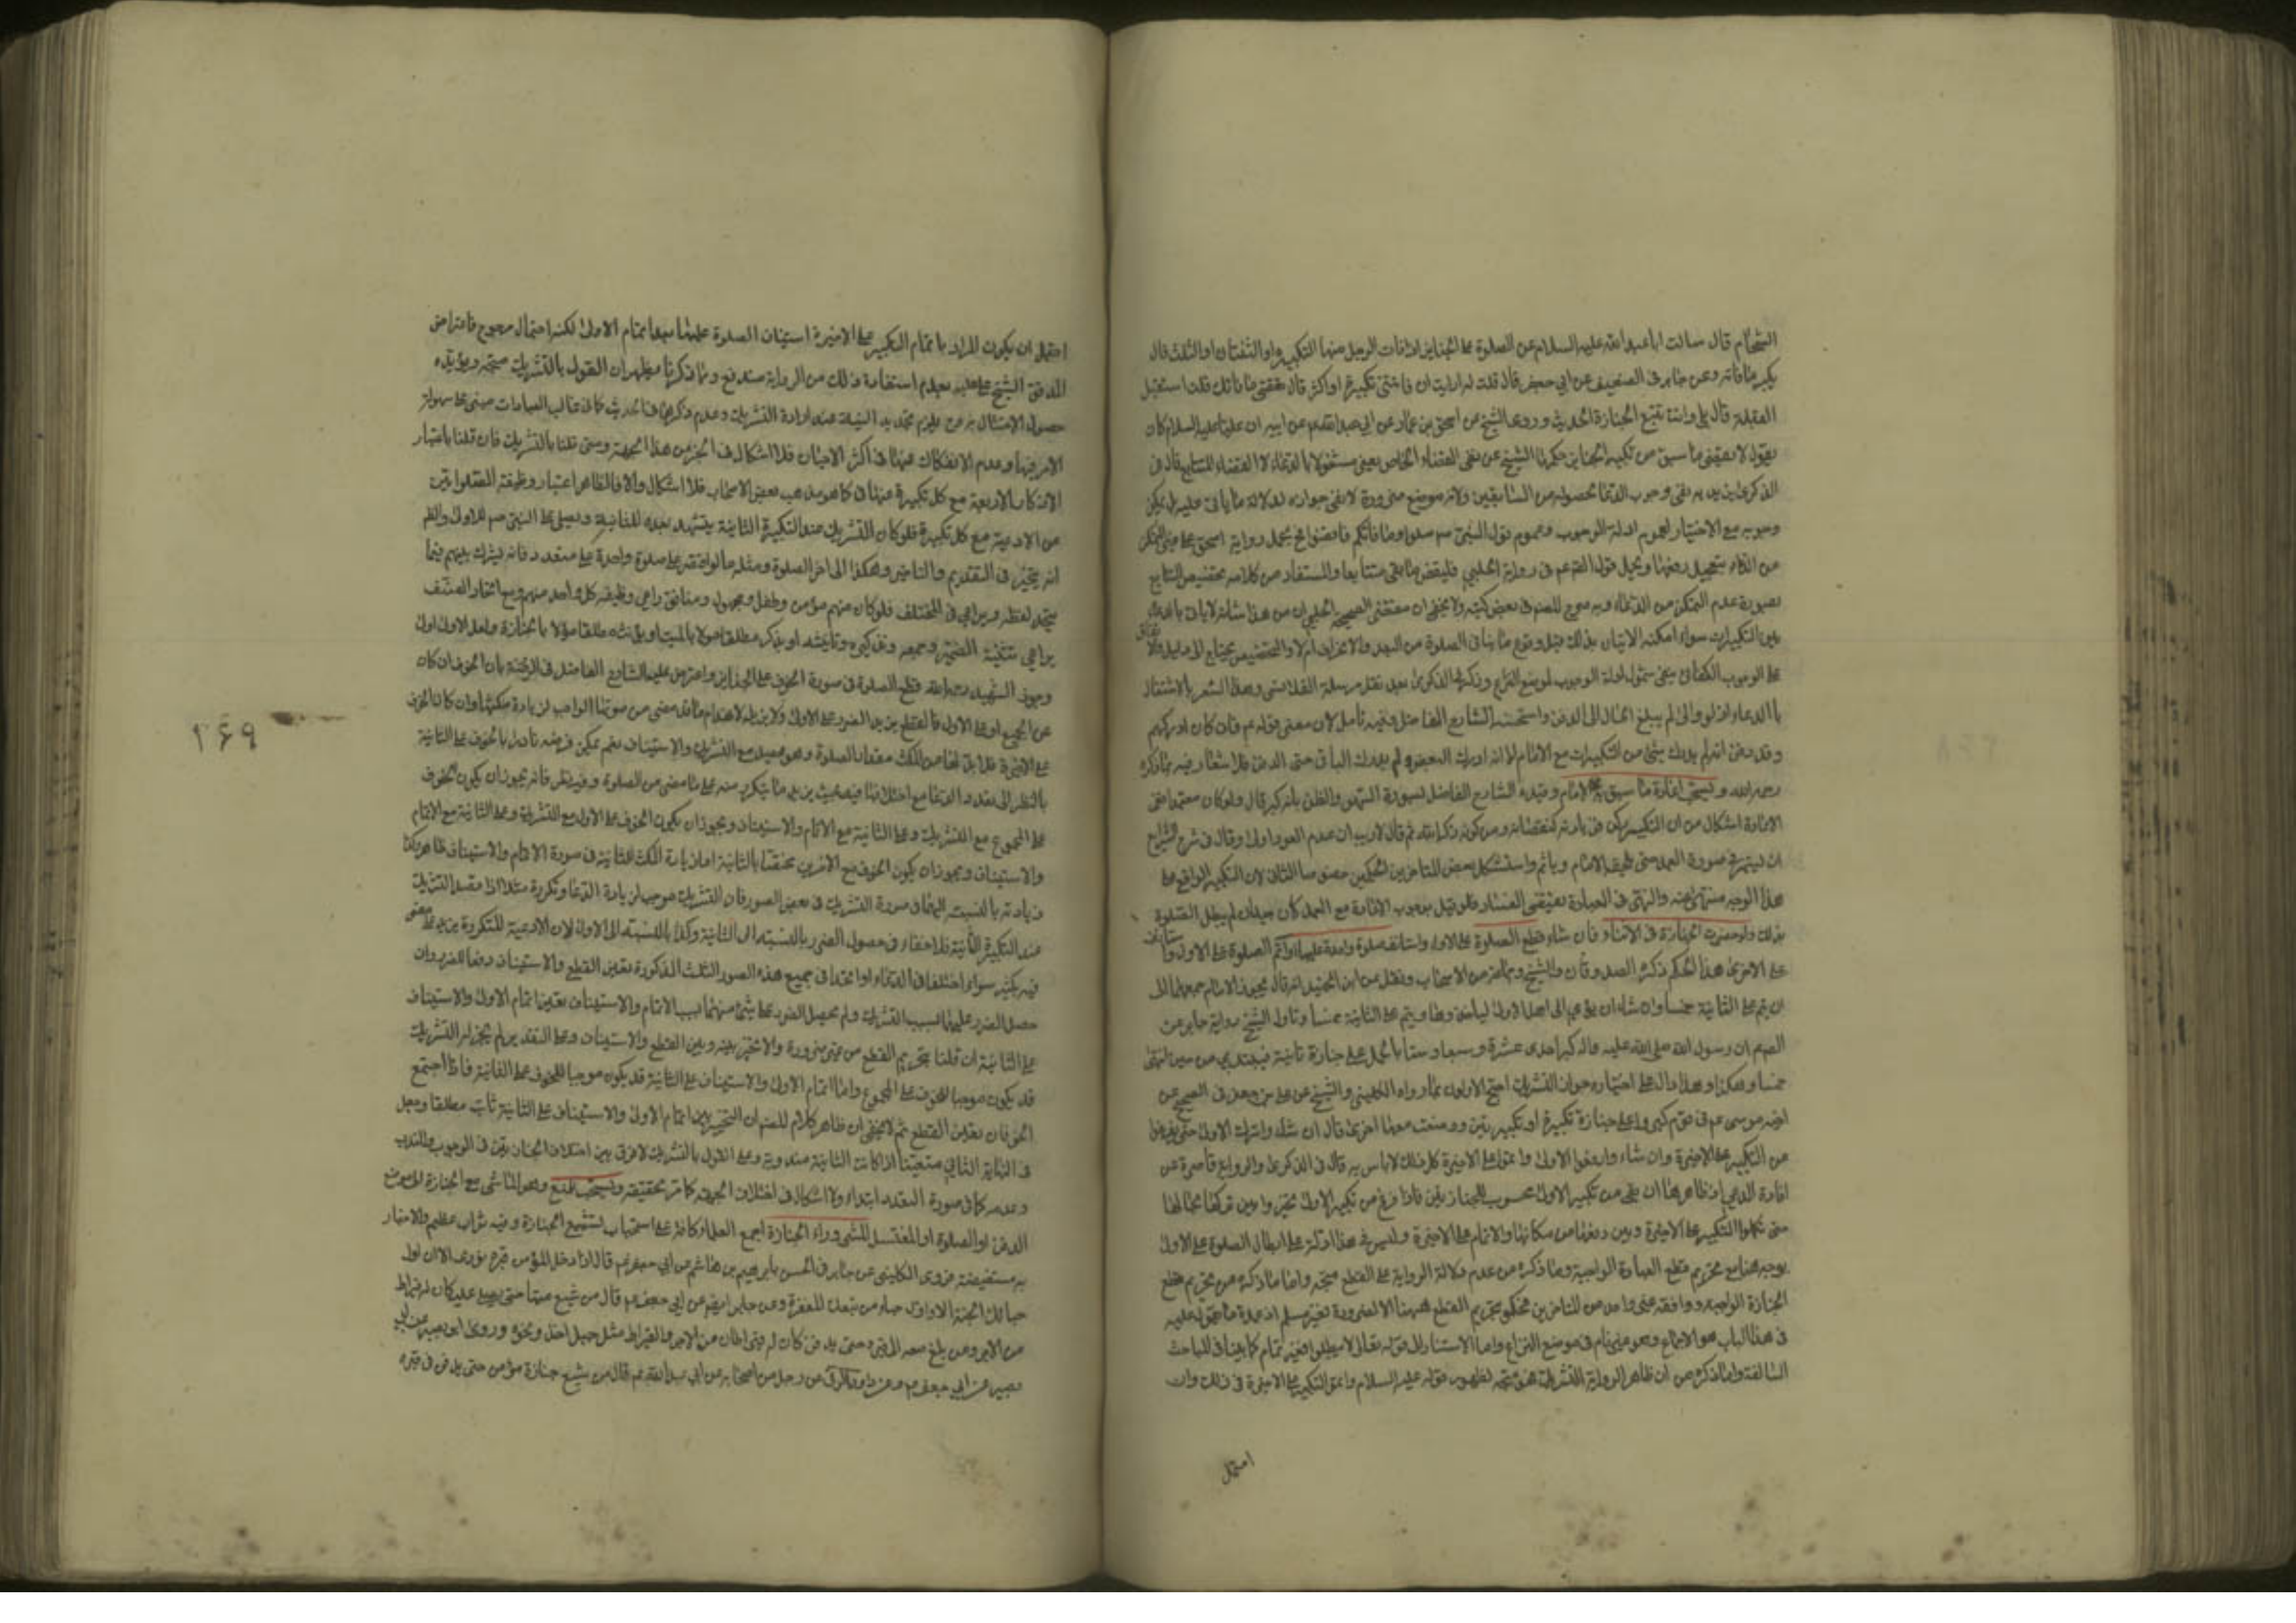 الشحام قال سالت ابا عبد الله عليه السلام عن الصلوة على الجنايز اذا فات الرجل منها التكبيرة او الثنتان او الثلث قال
يكبر ما فاته وعن جابر في الضعيف عن ابي جعفر قال قلت له ارايت ان فاتتني تكبيرة او اكثر قال تقضي ما فاتك قلت استقبل
القبلة قال بلى وانت تتبع الجنازة الحديث وروى الشيخ عن اسحق بن عمار عن ابي عبد الله عم عن ابيه ان عليا عليه السلام كان
يقول لا يقضى ما سبق من تكبير الجنايز حكمها الشيخ عن نفي القضاء الخاص يعني مشغولا بالدعاء لا القضاء المتتابع قال في
الذكرى يريد به نفي وجوب الدعاء لحصوله من السابقين ولانه موضع ضرورة لا نفي جوازه لدلالة ما ياتي عليه بل يمكن
وجوبه مع الاختيار لعموم ادلة الوجوب وعموم قول النبي صم صلوا وما فاتكم فاقضوا يحمل رواية اسحق على غير المتمكن
من الدعاء بتعجيل رفعها ويحمل قول الصم عم في رواية الحلبي فليقض ما بقي متتابعا والمستفاد من كلامه تخصيص التتابع
بصورة عدم التمكن من الدعاء وبه صرح المصنف في بعض كتبه ولا يخفى ان مقتضى الصحيح الحلبي ان من هذا شانه لا ياتي بالدعاء
بين التكبيرات سواء امكنه الاتيان بذلك قبل وقوع ما ينافي الصلوة من البعد والانحراف ام لا والتخصيص يحتاج الى دليل
على الوجوب الكفائي يخفى شمول ادلة الوجوب لموضع النزاع وذكر في الذكرى بعد نقل مرسلة القلانسي وهذا يشعر بالاشتغال
بالدعاء اذ لو والى لم يبلغ الحال الى الدفن واستحسنه الشارح الفاضل وفيه تامل لان معنى قوله عم فان كان ادركهم
وقد دفن انه لم يدرك شئ من التكبيرات مع الامام لا انه ادرك البعض ولم يدرك الباقي حتى الدفن فلا اشعار فيه بما ذكره
رحمه الله ويستحب اعادة ما سبق به الامام وقيده الشارح الفاضل بصورة السهو والظن بانه كبر قال ولو كان معتمدا ففي
الاعادة اشكال من ان التكبير ركن في زيادته كنقصانه ومن كونه ذكرا لله ثم قال لا ريب ان عدم العود اولى وقال في شرح الشرايع
ان يستمر في صورة العمد حتى يلحقه الامام وياثم واستشكل بعض المتاخرين الحكمين خصوصا الثاني لان التكبير الواقع على
هذا الوجه منهي عنه والنهي في العبادة يقتضي الفساد فلو قيل بوجوب الاعادة مع العمد كان جيدا ان لم يبطل الصلوة
بذلك ولو حضرت الجنازة في الاثناء فان شاء قطع الصلوة على الاولى واستانف صلوة واحدة عليهما او اتم الصلوة على الاولى واستانف
على الاخرى هذا الحكم ذكره الصدوقان والشيخ وجماعة من الاصحاب ونقل عن ابن الجنيد انه قال يجوز للامام جمعهما الى
ان يتم على الثانية خمسا وان شاء ان يومي الى اهل الاولى لياخذوها ويتم على الثانية خمسا وتاول الشيخ رواية جابر عن
الصم عم ان رسول الله صلى الله عليه واله كبر احدى عشرة وسبعا وستا بالحمل على جنازة ثانية فيبتدي من حين انتهى
خمسا وهكذا وهذا دال على اختياره جواز التشريك احتج الاولون بما رواه الكليني والشيخ عن علي بن جعفر في الصحيح عن
اخيه موسى عم في قوم كبروا على جنازة تكبيرة او تكبيرتين ووضعت معها اخرى قال ان شاءوا تركوا الاولى حتى يفرغوا
من التكبير على الاخيرة وان شاءوا رفعوا الاولى واتموا على الاخيرة كل ذلك لا باس به قال في الذكرى والرواية قاصرة عن
افادة المدعى اذ ظاهرها ان بقي من تكبير الاولى محسوب للجنازتين فاذا فرغ من تكبير الاولى تخيروا بين تركها بحالها
حتى يكملوا التكبير على الاخيرة وبين رفعها من مكانها والاتمام على الاخيرة وليس في هذا دلالة على ابطال الصلوة على الاولى
بوجه هذا مع تحريم قطع العبادة الواجبة وما ذكره من عدم دلالة الرواية على القطع متجه واما ما ذكره من تحريم قطع
الجنازة الواجبة ووافقه غير واحد من المتاخرين فحكموا بتحريم القطع ههنا الا لضرورة فغير مسلم اذ عمدة ما يعول عليه
في هذا الباب هو الاجماع وهو غير تام في موضع النزاع واما الاستناد الى قوله تعالى لا تبطلوا فغير تمام كما بينا في المباحث
السالفة واما ذكره من ان ظاهر الرواية التشريك فغير متجه لظهور قوله عليه السلام واتموا التكبير على الاخيرة في ذلك وان
احتمل
احتمل ان يكون المراد باتمام التكبير على الاخيرة استيناف الصلوة عليها بعد اتمام الاولى لكنه احتمال مرجوح فاعتراض
المدقق الشيخ علي عليه بعدم استفادة ذلك من الرواية مندفع ومما ذكرنا يظهر ان القول بالتشريك متجه ويؤيده
حصول الامتثال به مع يلزم تجديد النية عند ارادة التشريك وعدم ذكرها في الحديث كما في غالب العبادات مبني على سهولة
الامر فيها وعدم الانفكاك عنها في اكثر الاحيان فلا اشكال في الخبر من هذا الجهة ومتى قلنا بالتشريك فان قلنا باعتبار
الاذكار الاربعة مع كل تكبيرة عنها في كما هو مذهب بعض الاصحاب فلا اشكال والا فالظاهر اعتبار وظيفة الصلواتين
من الادعية مع كل تكبيرة فلو كان التشريك عند التكبيرة الثانية يتشهد بعده للثانية ويصلي على النبي صم للاولى والظ
انه يتخير في التقديم والتاخير وهكذا الى اخر الصلوة ومثله ما لو اقتصر على صلوة واحدة على متعدد فانه يشرك بينهم فيما
يتحد لفظه ويراعي في المختلف فلو كان منهم مؤمن وطفل ومجهول ومنافق راعى وظيفة كل واحد منهم ومع اتحاد الصنف
يراعي تثنية الضمير وجمعه وتذكيره وتانيثه او يذكر مطلقا مؤولا بالميت او يؤنث مطلقا مؤولا بالجنازة ولعل الاول اولى
وجوز الشهيد رحمه الله قطع الصلوة في صورة الخوف على الجنايز واعترض عليه الشارح الفاضل في الروضة بان الخوف ان كان
على الجميع او على الاولى فالقطع يزيد الضرر على الاولى ولا يزيله لانهدام ما قد مضى من صوتها الواجب لزيادة مكثها وان كان الخوف
على الاخيرة فلا بد لها من المكث مقدار الصلوة وهو يحصل مع التشريك والاستيناف نعم يمكن فرضه نادرا بالخوف على الثانية
بالنظر الى تعدد الدعاء مع اختلافهما فيه بحيث يزيد ما يتكرر منه على ما مضى من الصلوة وفيه نظر فانه يجوز ان يكون الخوف
على المجموع مع التشريك وعلى الثانية مع الاتمام والاستيناف ويجوز ان يكون الخوف على الاولى مع التشريك وعلى الثانية مع الاتمام
والاستيناف ويجوز ان يكون الخوف مع الاخرين مختصا بالثانية اما زيادة المكث للثانية في صورة الاتمام والاستيناف ظاهرة
زيادته بالنسبة اليها في صورة التشريك في بعض الصور فان التشريك موجب لزيادة الدعاء وتكرره مثلا اذا قصد التشريك
عند التكبيرة الثانية فلا خفاء في حصول الضرر بالنسبة الى الثانية وكذا بالنسبة الى الاولى لان الادعية المتكررة يزيد على ما مضى
فيه بكثير سواء اختلفا في الدعاء او اتحدا في جميع هذه الصور الثلث المذكورة يتعين القطع والاستيناف دفعا للضرر وان
حصل الضرر عليهما بسبب التشريك ولم يحصل الضرر على شئ منهما بسبب الاتمام والاستيناف يتعين اتمام الاولى والاستيناف
على الثانية ان قلنا بتحريم القطع من غير ضرورة والا تخير بينه وبين القطع والاستيناف وعلى التقديرين لم يجز له التشريك
قد يكون موجبا للخوف على المجموع واما اتمام الاولى والاستيناف على الثانية قد يكون موجبا للخوف على الثانية فاذا اجتمع
الخوفان يتعين القطع ثم لا يخفى ان ظاهر كلام المصنف ان التخيير بين اتمام الاولى والاستيناف على الثانية ثابت مطلقا وجعل
في النهاية الثاني متعينا اذا كانت الثانية مندوبة وعلى القول بالتشريك لا فرق بين اختلاف الجنازتين في الوجوب والندب
وعدمه كما في صورة التعدد ابتداء ولا اشكال في اختلاف الجهة كما مر تحقيقه ويستحب للمشيع وهو الماشي مع الجنازة الى موضع
الدفن او الصلوة او المغتسل المشي وراء الجنازة اجمع العلماء كافة على استحباب تشييع الجنازة وفيه ثواب عظيم والاخبار
به مستفيضة فروى الكليني عن جابر في الحسن بابرهيم بن هاشم عن ابي جعفر عم قال اذا دخل المؤمن قبره نودي الا ان اول
حبائك الجنة الا واول حباء من تبعك المغفرة وعن جابر ايضا عن ابي جعفر عم قال من شيع ميتا حتى يصلي عليه كان له قيراط
من الاجر ومن بلغ معه الى قبره حتى يدفن كان له قيراطان من الاجر والقيراط مثل جبل احد ونحوه وروى ابو بصير عن ابي
بصير عن ابي جعفر عم وعن داود الرقي عن رجل من اصحابه عن ابي عبد الله عم قال من شيع جنازة مؤمن حتى يدفن في قبره
۱۶۹